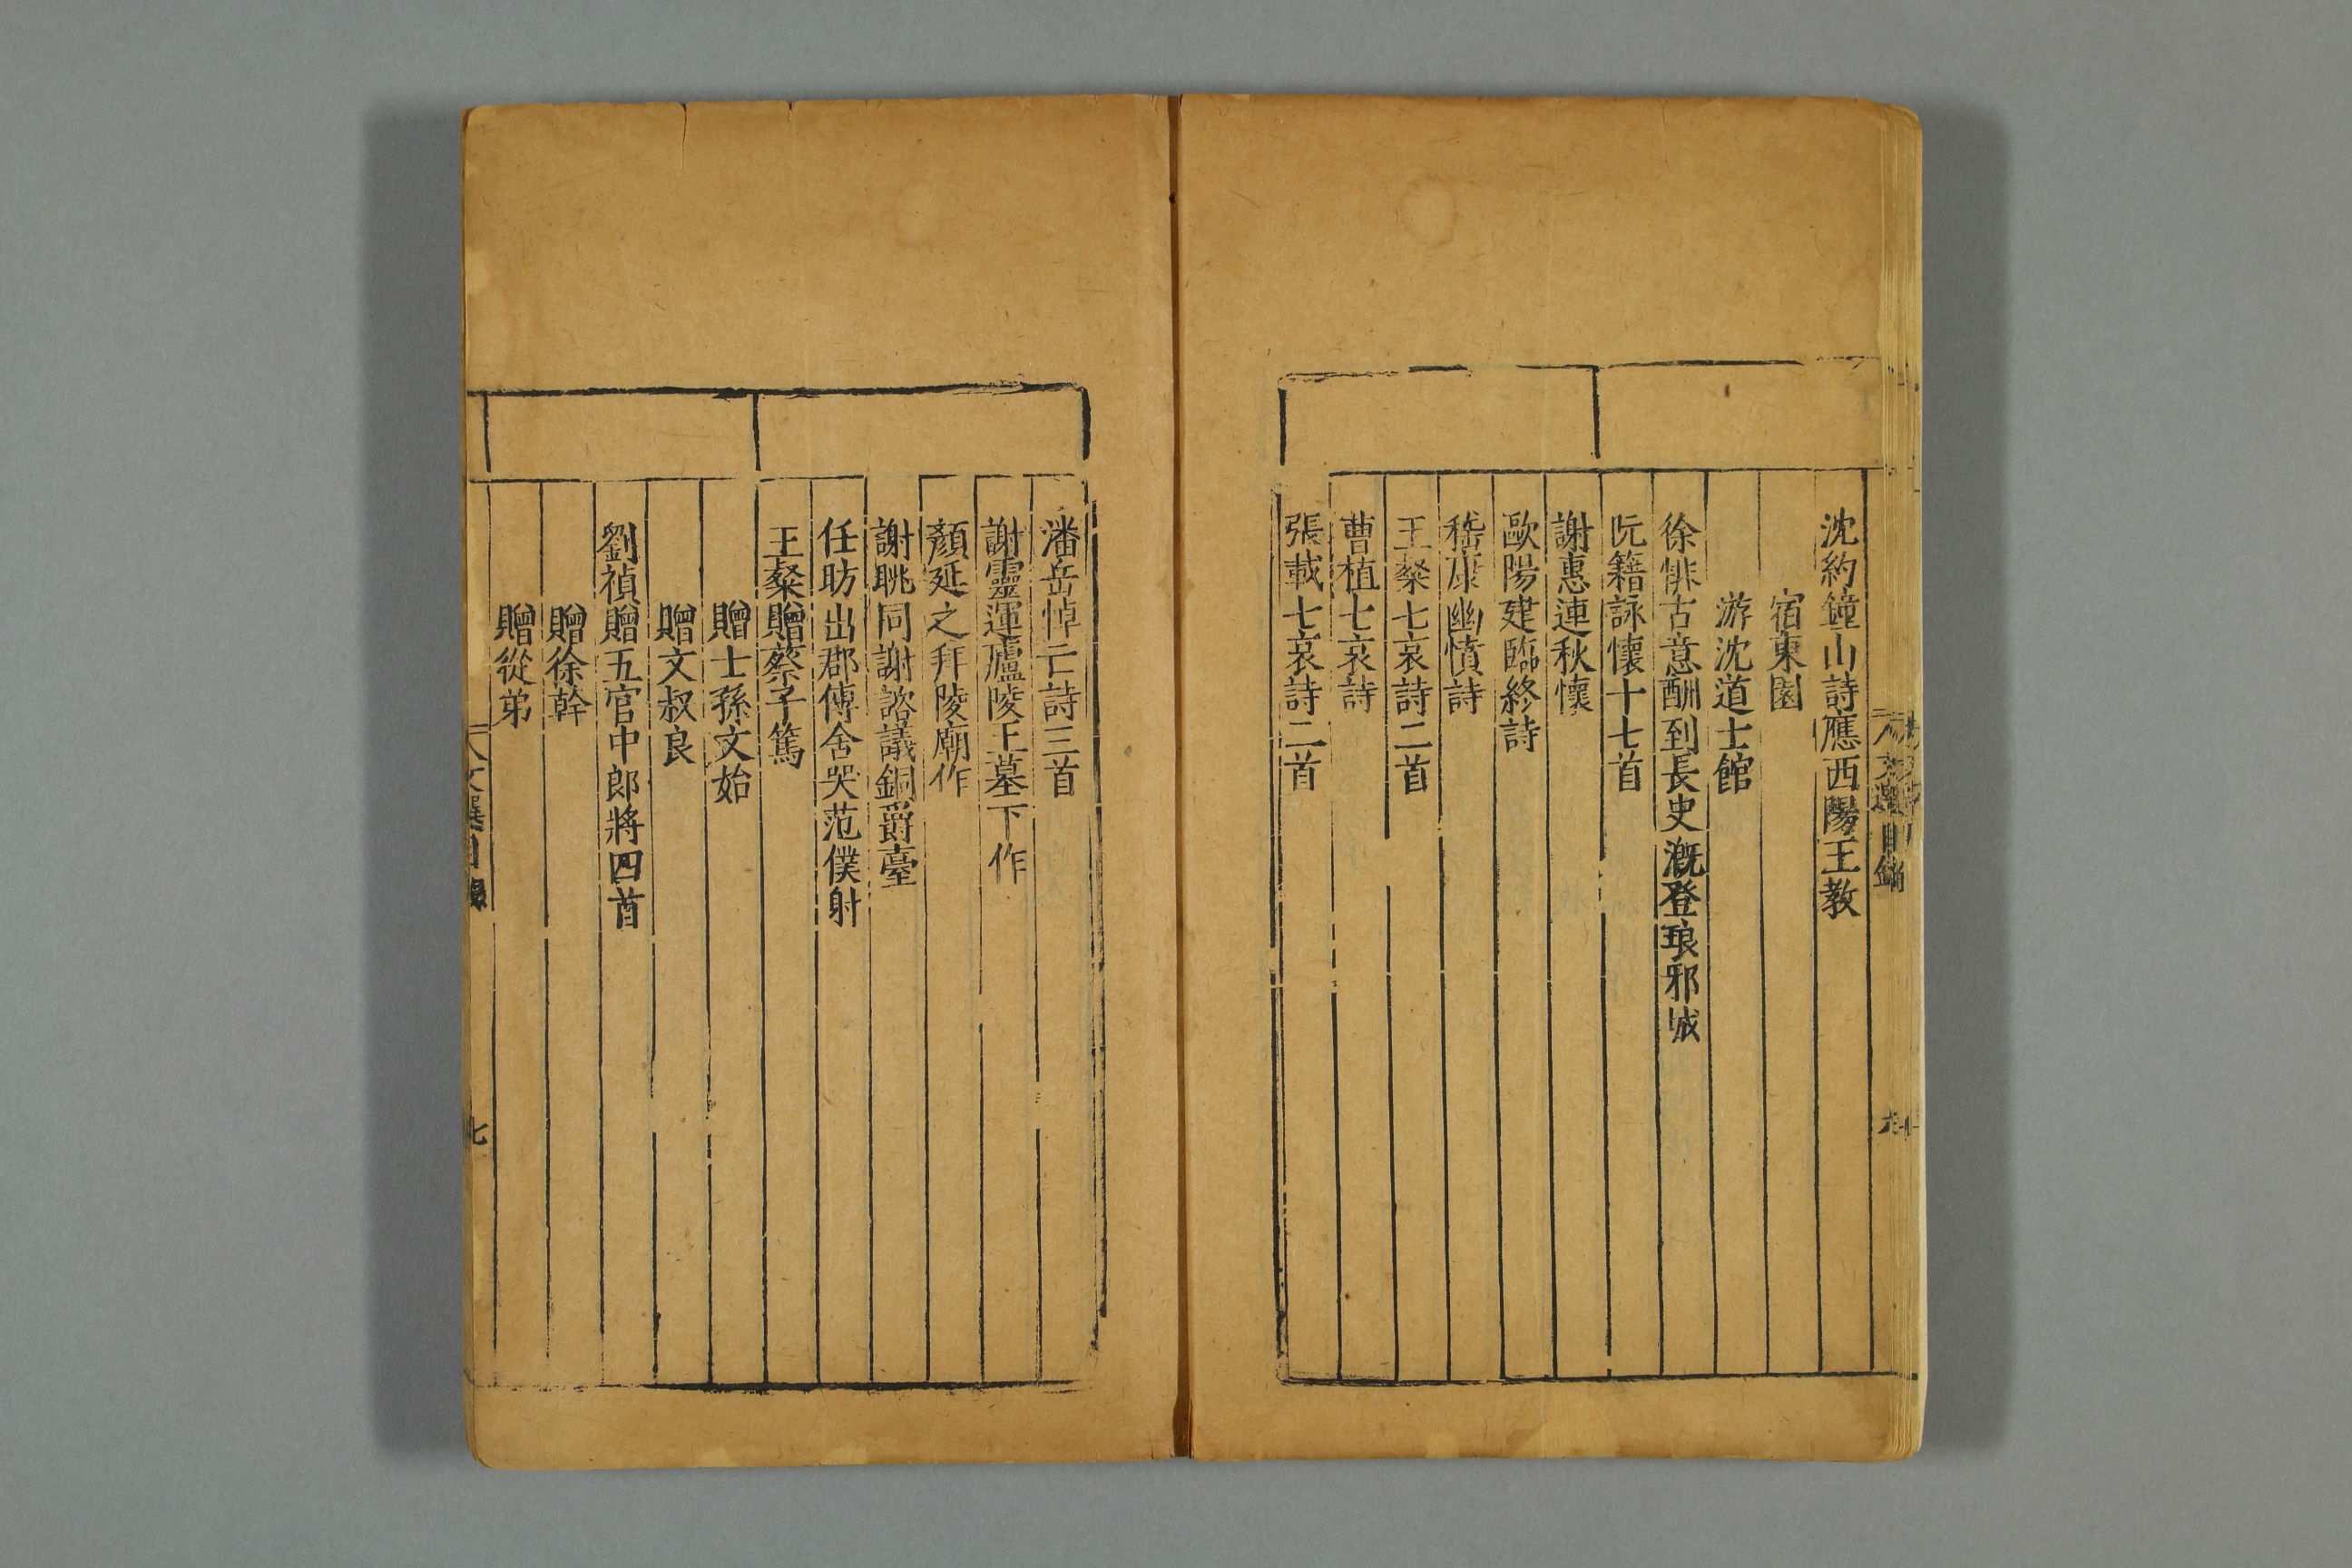 文選目錄
沈約鐘山詩應西陽王教
宿東園
游沈道士館
徐悱古意酬到長史溉登琅邪城
阮籍詠懷十七首
謝惠連秋懷
歐陽建臨終詩
嵇康幽憤詩
王粲七哀詩二首
曹植七哀詩
張載七哀詩二首
潘岳悼亡詩三首
謝靈運廬陵王墓下作
顏延之拜陵廟作
謝眺同謝諮議銅爵臺
任昉出郡傳舍哭范僕射
王粲贈蔡子篤
贈士孫文始
贈文叔良
劉禎贈五官中郎將四首
贈徐幹
贈從弟
文選目錄
七